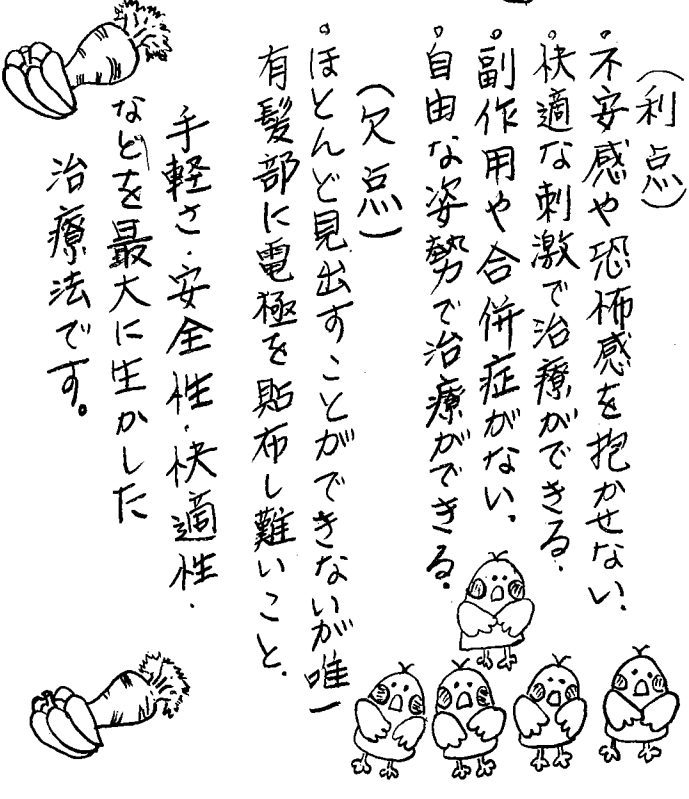 （利点）
。不安感や恐怖感を抱かせない.
。快適な刺激で治療ができる.
。副作用や合併症がない.
。自由な姿勢で治療ができる.
（欠点）
。ほとんど見出すことができないが唯一
有髪部に電極を貼布し難いこと.
手軽さ・安全性・快適性・
などを最大に生かした
治療法です。